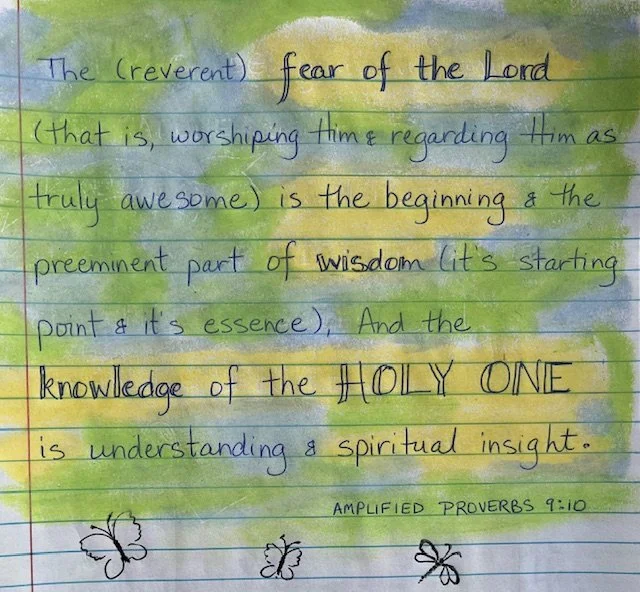 The (reverent) fear of the Lord
(that is, worshiping Him & regarding Him as
truly awesome) is the beginning & the
preeminent part of wisdom (it's starting
point & it's essence), And the
knowledge of the HOLY ONE
is understanding & spiritual insight.
AMPLIFIED PROVERBS 9:10